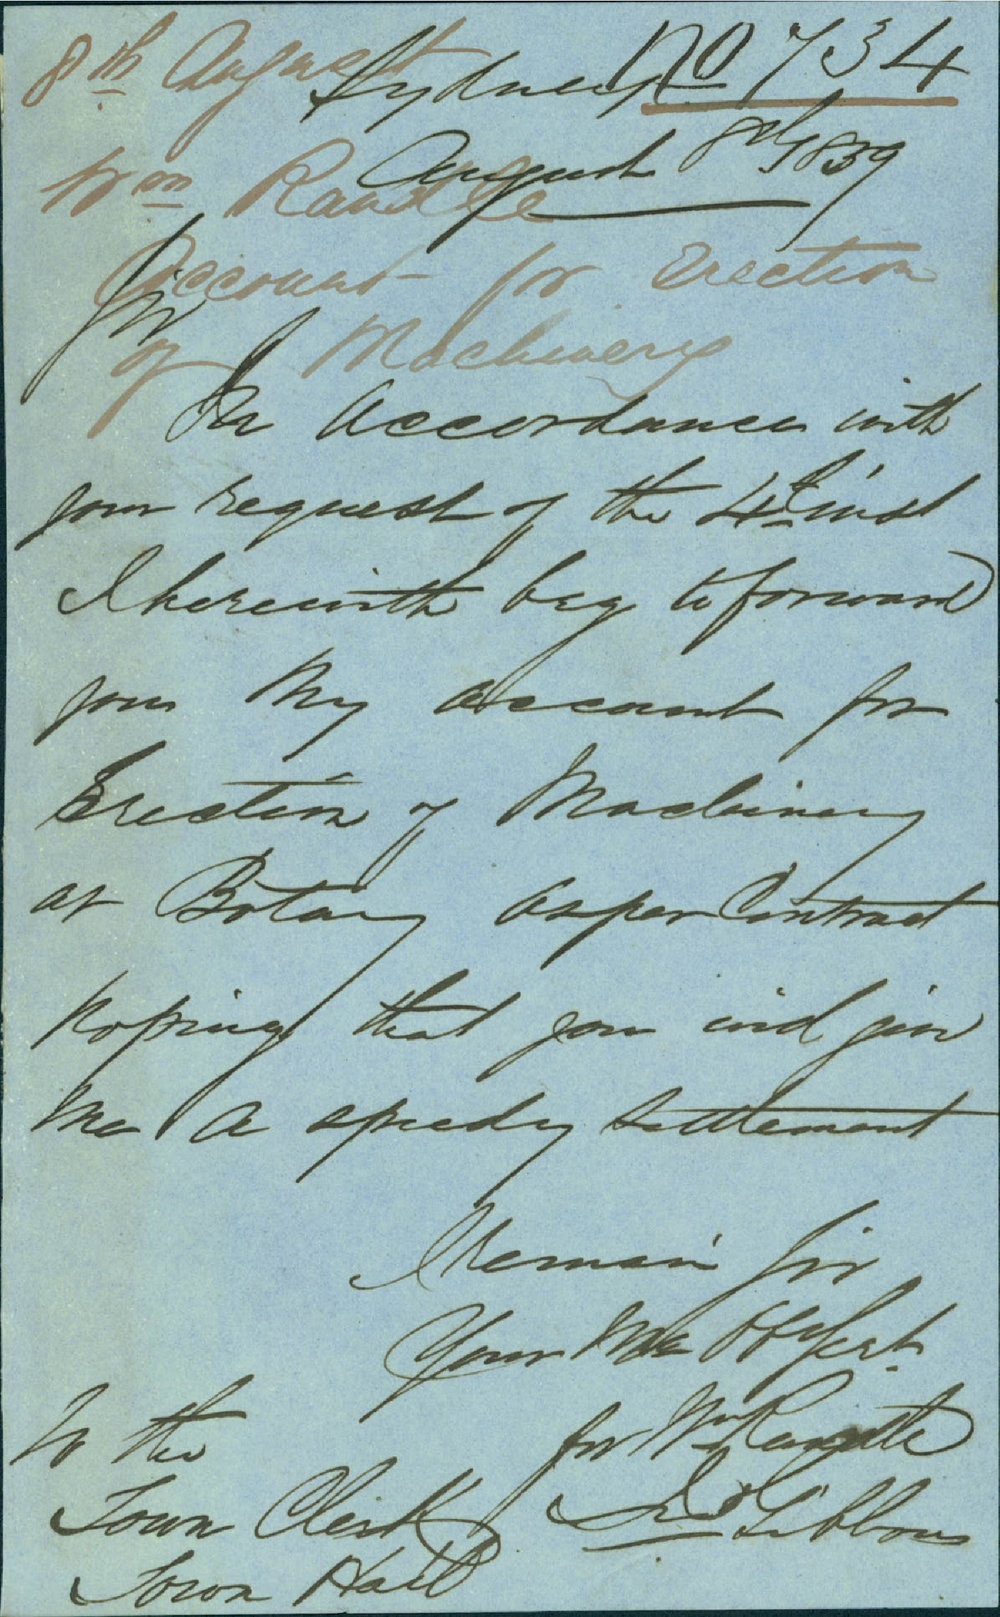 No 734
8th August
Wm Randle
Account for Erection
of Machinery
Sydney
August 8th/1859
Sir
In Accordance with
your request of the 4th inst
I herewith beg to forward
you My account for
Erection of Machinery
at Botany as per Contract
hoping that you will give
Me a speedy settlement
I Remain Sir
Your Mo Obt Sert.
for Wm Randle
Gibbons
To the
Town Clerk
Town Hall